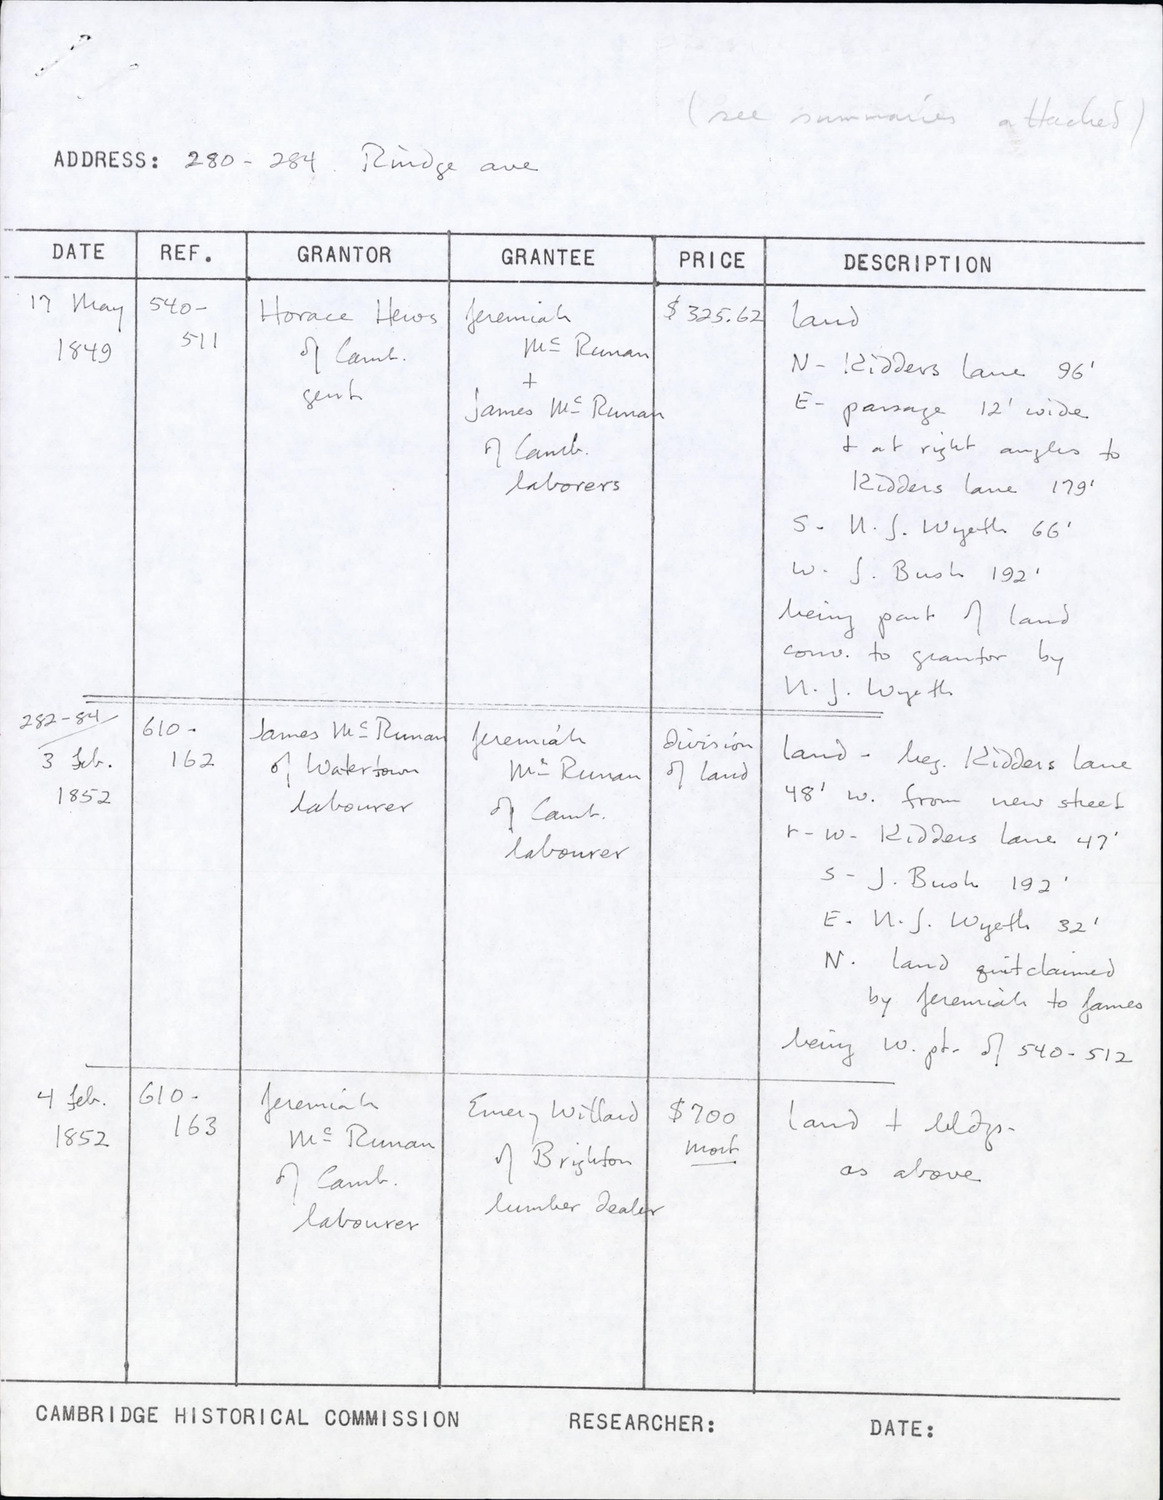 (see summaries attached)
ADDRESS: 280-284 Rindge ave
DATE REF. GRANTOR GRANTEE PRICE DESCRIPTION
17 May
1849
540-
511
Horace Hews
of Camb.
gent
Jeremiah
Mc Runan
+
James Mc Runan
of Camb.
laborers
$325.62
land
N- Kidders lane 96'
E- passage 12' wide
+ at right angles to
Kidders lane 179'
S- N. J. Wyeth 66'
W- J. Bush 192'
being part of land
conv. to grantor by
N. J. Wyeth
282-84
3 Feb.
1852
610-
162
James Mc Runan
of Watertown
labourer
Jeremiah
Mc Runan
of Camb.
labourer
division
of land
land - beg. Kidders lane
48' w. from new street
r - W- Kidders lane 47'
S - J. Bush 192'
E- N. J. Wyeth 32'
N. land quitclaimed
by Jeremiah to James
being W. pt. of 540-512
4 Feb.
1852
610-
163
Jeremiah
Mc Runan
of Camb.
labourer
Emery Willard
of Brighton
lumber dealer
$700
mort
land + bldgs.
as above
CAMBRIDGE HISTORICAL COMMISSION RESEARCHER: DATE: